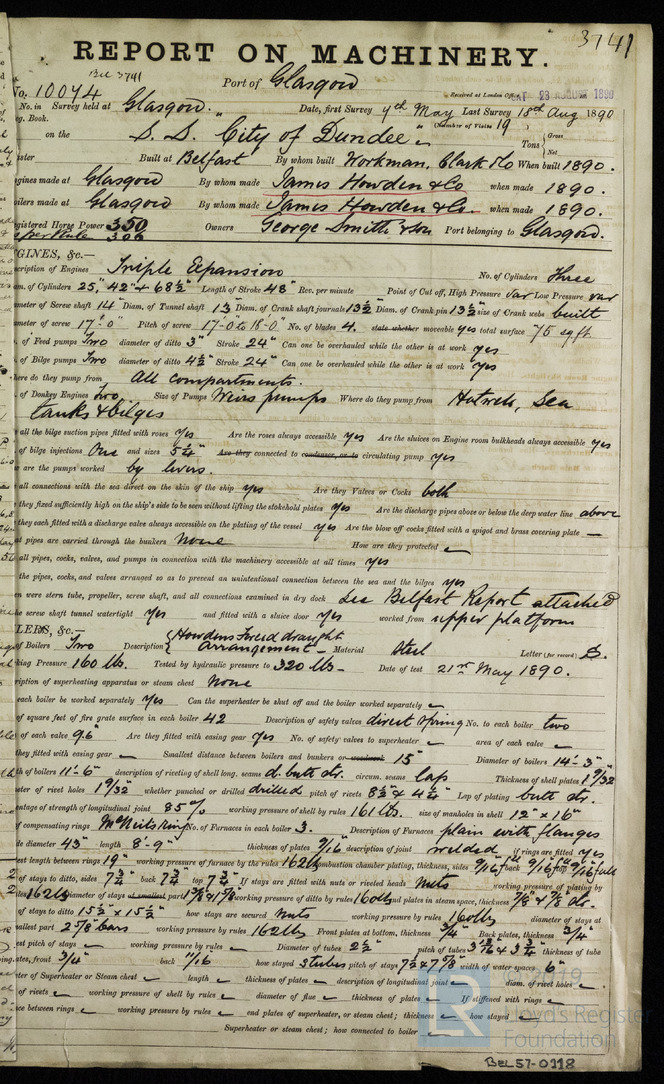 3741
REPORT ON MACHINERY.
Bel 3741
No. 10074 Port of Glasgow
Received at London Office SAT 23 AUGUST 1890
No. in Survey held at Glasgow. Date, first Survey 7th May Last Survey 18th Aug 1890
eg. Book. (Number of Visits 19
on the S. S. "City of Dundee" Tons { Gross Net
ster Built at Belfast By whom built Workman, Clark & Co When built 1890.
ngines made at Glasgow By whom made James Howden & Co when made 1890.
oilers made at Glasgow By whom made James Howden & Co. when made 1890.
egistered Horse Power 350 Owners George Smith & Son Port belonging to Glasgow.
as per Rule 306
GINES, &c.—
scription of Engines Triple Expansion No. of Cylinders Three
am. of Cylinders 25", 42" & 68½" Length of Stroke 48" Rev. per minute Point of Cut off, High Pressure var Low Pressure var
ameter of Screw shaft 14" Diam. of Tunnel shaft 13 Diam. of Crank shaft journals 13½ Diam. of Crank pin 13½" size of Crank webs built
ameter of screw 17'-0" Pitch of screw 17-0 to 18-0 No. of blades 4. state whether moveable yes total surface 75 sq ft.
. of Feed pumps Two diameter of ditto 3" Stroke 24" Can one be overhauled while the other is at work yes
. of Bilge pumps Two diameter of ditto 4½" Stroke 24" Can one be overhauled while the other is at work yes
here do they pump from All compartments.
. of Donkey Engines Two, Size of Pumps Weirs pumps Where do they pump from Hotwell, Sea
tanks & bilges
all the bilge suction pipes fitted with roses yes Are the roses always accessible yes Are the sluices on Engine room bulkheads always accessible yes
. of bilge injections One and sizes 5¼" Are they connected to condenser, or to circulating pump yes
are the pumps worked by levers.
all connections with the sea direct on the skin of the ship yes Are they Valves or Cocks both
they fixed sufficiently high on the ship's side to be seen without lifting the stokehold plates yes Are the discharge pipes above or below the deep water line above
they each fitted with a discharge valve always accessible on the plating of the vessel yes Are the blow off cocks fitted with a spigot and brass covering plate —
at pipes are carried through the bunkers None How are they protected
all pipes, cocks, valves, and pumps in connection with the machinery accessible at all times yes
the pipes, cocks, and valves arranged so as to prevent an unintentional connection between the sea and the bilges yes
en were stern tube, propeller, screw shaft, and all connections examined in dry dock See Belfast Report attached
he screw shaft tunnel watertight yes and fitted with a sluice door yes worked from upper platform
LERS, &c.—
of Boilers Two Description { Howdens forced draught arrangement — Material Steel Letter (for record) S.
king Pressure 160 lbs. Tested by hydraulic pressure to 320 lbs — Date of test 21st May 1890.
cription of superheating apparatus or steam chest None
each boiler be worked separately yes Can the superheater be shut off and the boiler worked separately
of square feet of fire grate surface in each boiler 42 Description of safety valves direct spring No. to each boiler two
of each valve 9.6" Are they fitted with easing gear yes No. of safety valves to superheater area of each valve
they fitted with easing gear Smallest distance between boilers and bunkers or woodwork 15" Diameter of boilers 14-3"
th of boilers 11'-6" description of riveting of shell long. seams d. butt str. circum. seams lap Thickness of shell plates 1 9/32
ter of rivet holes 1 9/32" whether punched or drilled drilled pitch of rivets 8½" & 4¼" Lap of plating butt str.
entage of strength of longitudinal joint 85% working pressure of shell by rules 161 lbs. size of manholes in shell 12" × 16"
of compensating rings McNeils ring No. of Furnaces in each boiler 3. Description of Furnaces plain with flanges
de diameter 43" length 8'-9" thickness of plates 9/16" description of joint welded if rings are fitted yes
est length between rings 19" working pressure of furnace by the rules 162 lb combustion chamber plating, thickness, sides 9/16" back 9/16" top 9/16" full
of stays to ditto, sides 7¾" back 7¾" top 7¾" If stays are fitted with nuts or riveted heads Nuts working pressure of plating by
les 162 lb Diameter of stays at smallest part 1⅜ & 1⅞" working pressure of ditto by rules 160 lb end plates in steam space, thickness ⅞ & ⅞ str.
of stays to ditto 15½" × 15½" how stays are secured Nuts working pressure by rules 160 lb diameter of stays at
mallest part 2⅞ bars working pressure by rules 162 lb Front plates at bottom, thickness ¾" Back plates, thickness ¾"
est pitch of stays working pressure by rules Diameter of tubes 2½" pitch of tubes 3 13/16 & 3¾" thickness of tube
ates, front ¾" back 11/16" how stayed s tubes pitch of stays 7½ & 7⅝" width of water spaces 6"
ter of Superheater or Steam chest length thickness of plates description of longitudinal joint diam. of rivet holes
of rivets working pressure of shell by rules diameter of flue thickness of plates If stiffened with rings
ce between rings working pressure by rules end plates of superheater, or steam chest; thickness how stayed
Superheater or steam chest; how connected to boiler
Lloyd's Register
Foundation
BEL57-0118